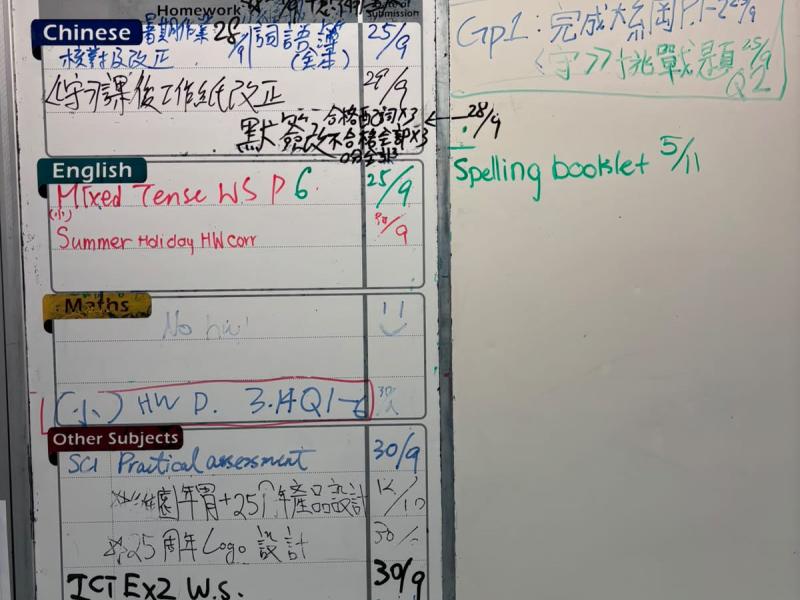 Homework
Submission
Chinese
暑期作業 28/9 詞語簿 25/9
核對及改正
《守》課後工作紙改正 29/9
合格配詞x3 ← 28/9
默 簽改 不合格全部x3
English
Mixed Tense WS P6 25/9
(小)
Summer Holiday HW corr /9
Maths
No hw
(小) HW P. 3.14 Q1-6 30/
Other Subjects
SCI Practical assessment 30/9
年曆+25周年產品設計
25周年Logo設計 30/
ICT Ex2 W.S. 30/9
Gp1: 完成大綱P.1-2 29/9
《守》挑戰題 25/9
Q2
Spelling booklet 5/11